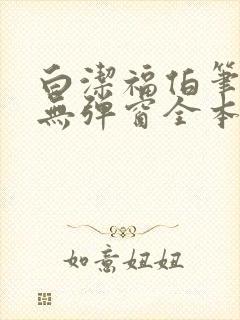 白潔福伯筆
無彈窗全本
如意妞妞